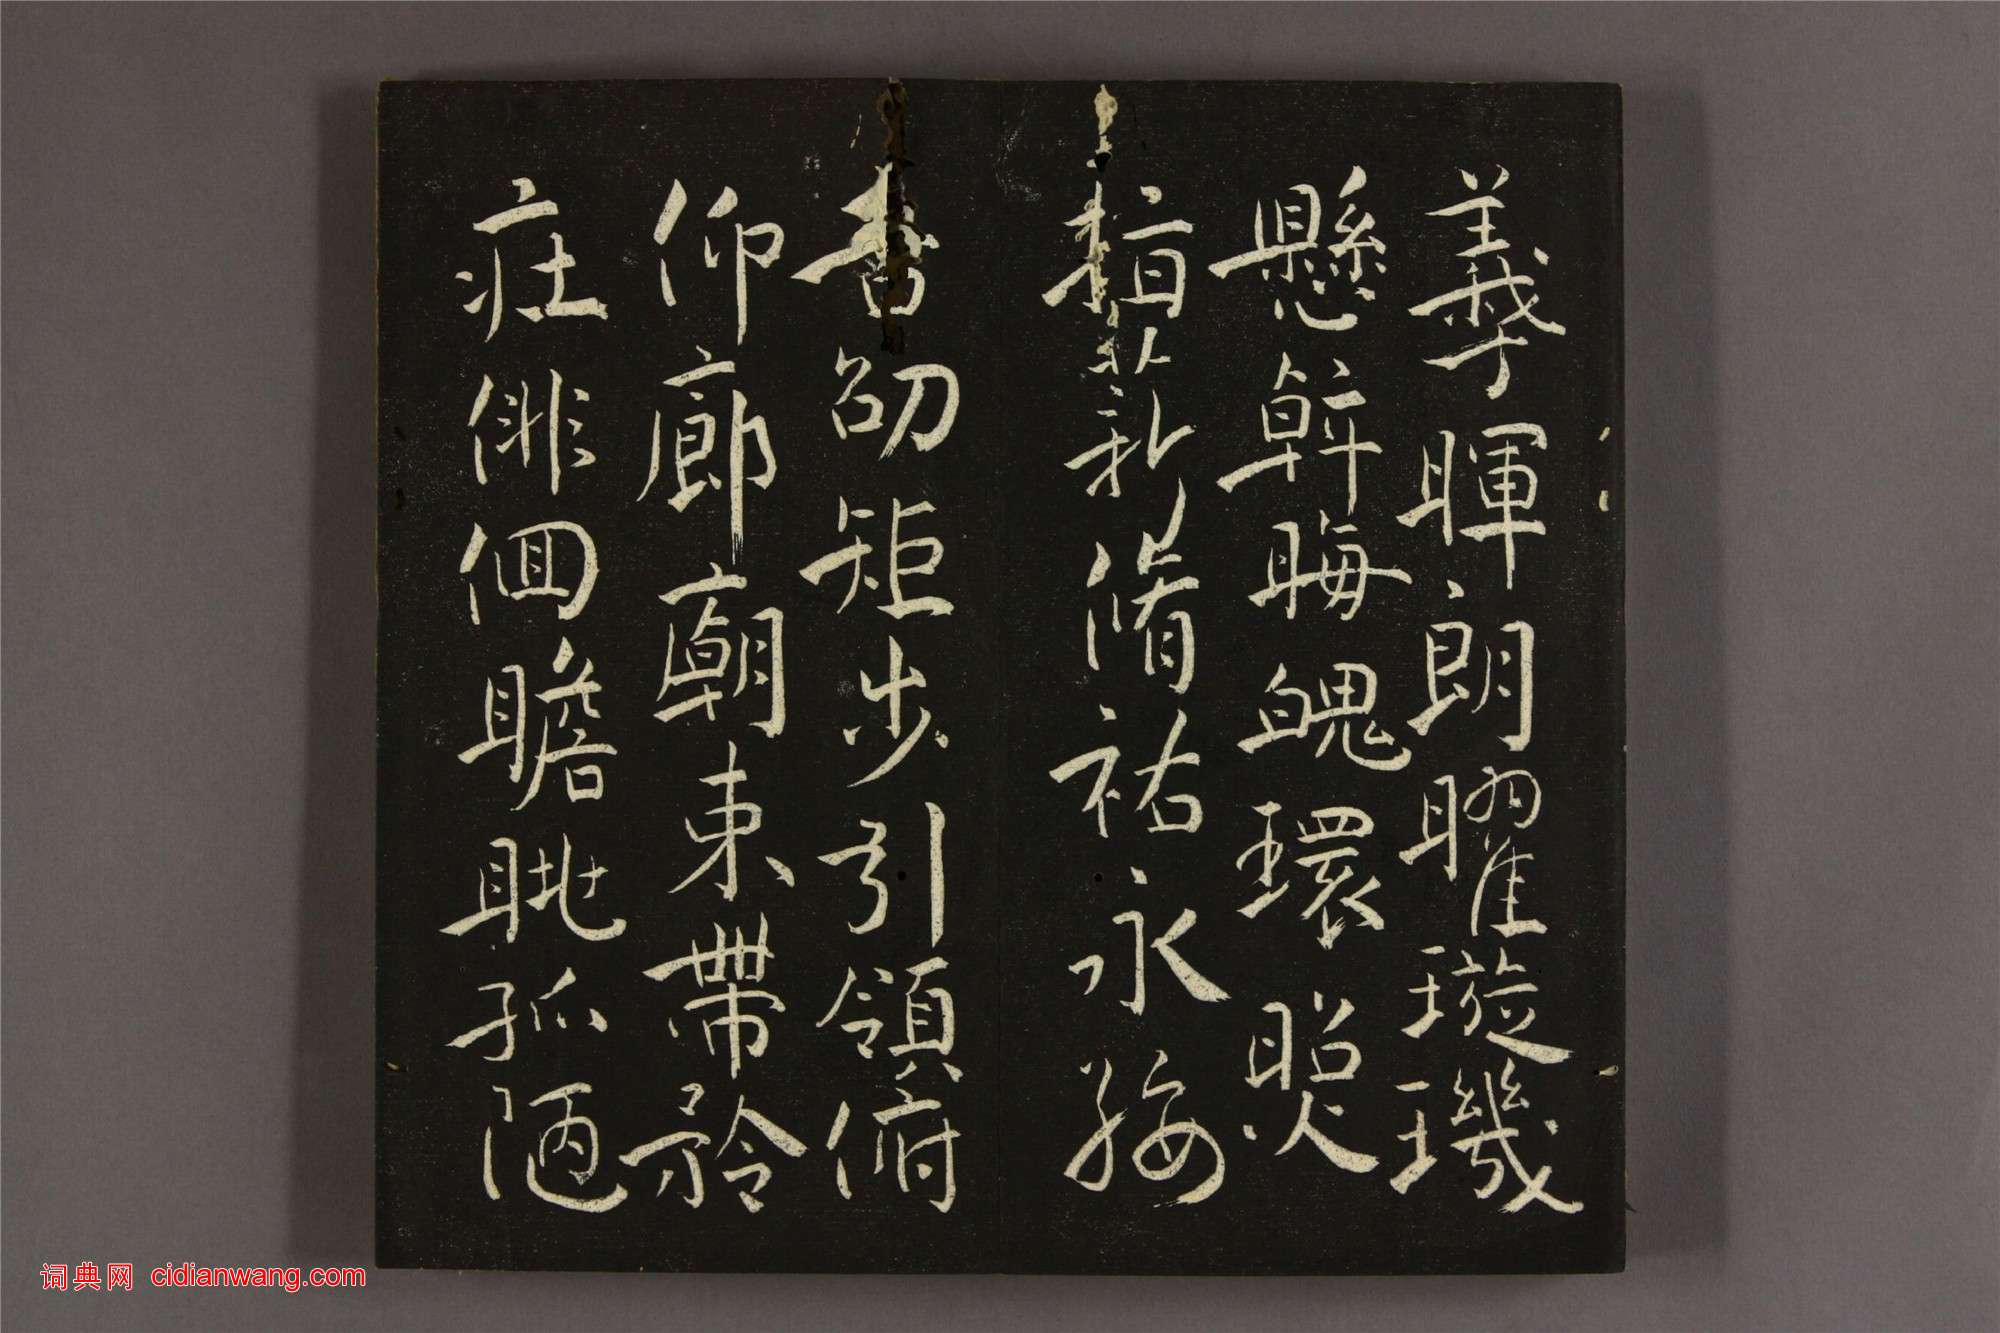 羲暉朗曜璇璣
懸斡晦魄環照
指薪脩祜永綏
吉劭矩步引領俯
仰廊廟束帶矜
庄俳佪瞻眺孤陋
词典网 cidianwang.com